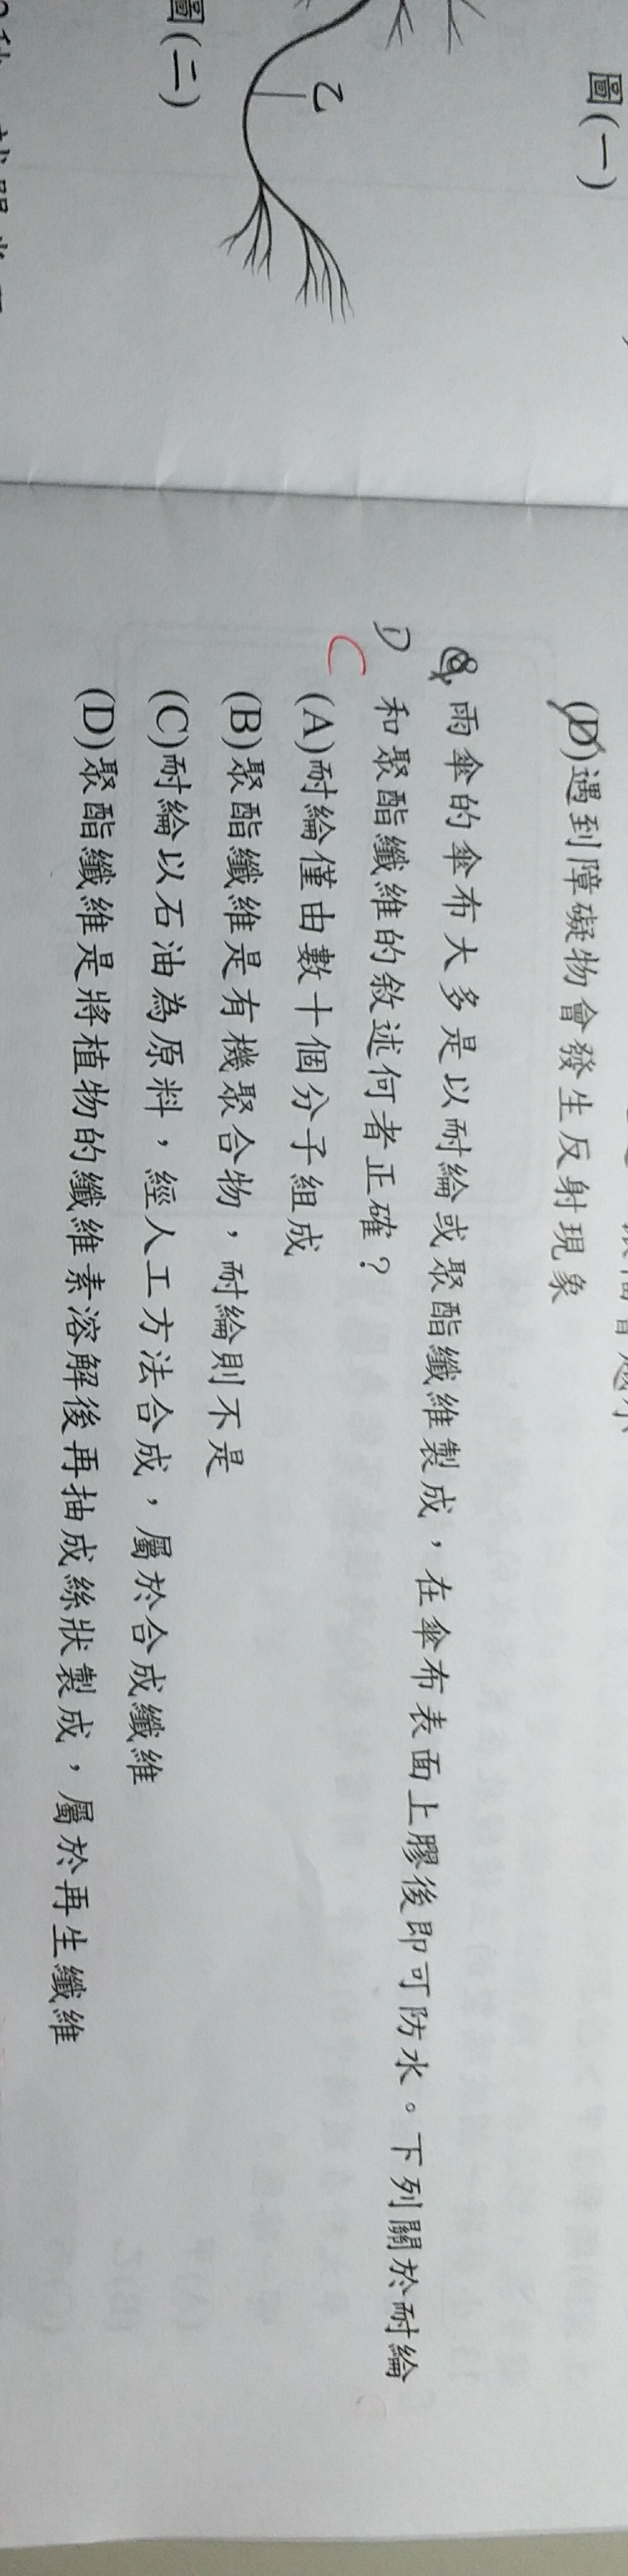 圖(一)
乙
圖(二)
(D)遇到障礙物會發生反射現象
8.雨傘的傘布大多是以耐綸或聚酯纖維製成，在傘布表面上膠後即可防水。下列關於耐綸
D 和聚酯纖維的敘述何者正確？
C
(A)耐綸僅由數十個分子組成
(B)聚酯纖維是有機聚合物，耐綸則不是
(C)耐綸以石油為原料，經人工方法合成，屬於合成纖維
(D)聚酯纖維是將植物的纖維素溶解後再抽成絲狀製成，屬於再生纖維